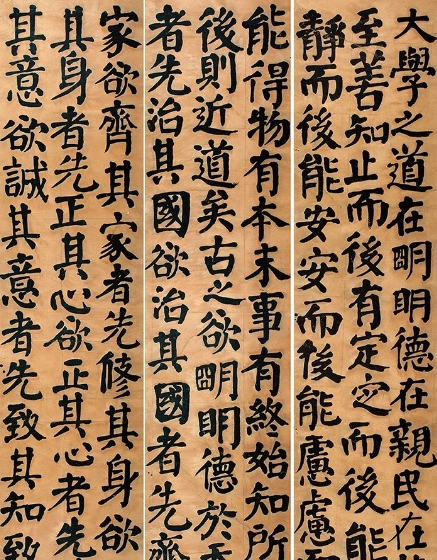 大學之道在朙明德在親民在
至善知止而後有定定而後能
靜而後能安安而後能慮慮
能得物有本末事有終始知所
後則近道矣古之欲朙明德於
者先治其國欲治其國者先齊
家欲齊其家者先修其身欲
其身者先正其心欲正其心者先
其意欲誠其意者先致其知致